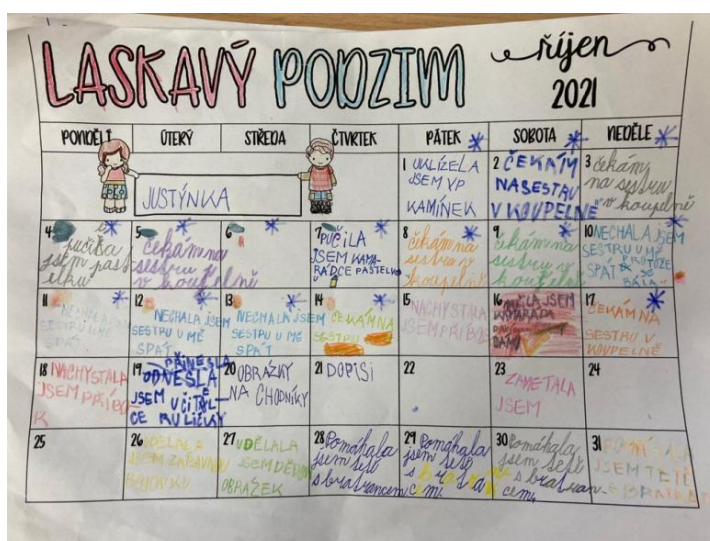 LASKAVÝ PODZIM
říjen
2021
PONDĚLÍ ÚTERÝ STŘEDA ČTVRTEK PÁTEK SOBOTA NEDĚLE
JUSTÝNKA
1 UKLÍZELA
JSEM VP
KAMÍNEK
2 ČEKÁM
NASESTRU
V KOUPELNĚ
3 čekám
na sestru
v koupelně
4
půčila
jsem past
elku
5
čekám na
sestru
v koupelně
6
7
PŮČILA
JSEM KAMA
RÁDCE PASTELKU
8
čekám na
sestru v
koupelně
9
čekám na
sestru v
koupelně
10 NECHALA JSEM
SESTRU U MĚ
SPÁT PROTOŽE
SE BÁLA
11
NECHALA
SESTRU U MĚ
SPÁT
12
NECHALA JSEM
SESTRU U MĚ
SPÁT
13
NECHALA JSEM
SESTRU U MĚ
SPÁT
14
ČEKÁM NA
SESTRU
15
NACHYSTALA
JSEM PŘÍBO
16
JSEM
KAMARÁDA
17
ČEKÁM NA
SESTRU V
KOUPELNĚ
18 NACHYSTALA
JSEM PŘÍBO
R
19 PŘINESLA
ODNESLA
JSEM UČITEL
CE RULIČKY
20 OBRÁZKY
NA CHODNÍKY
21 DOPISI
22
23
ZAMETALA
JSEM
24
25
26 UDĚLALA
JSEM ZÁBAVNOU
BOJOVKU
27 UDĚLALA
JSEM
OBRÁZEK
28 Pomáhala
jsem tetě
s bratrancem
29 Pomáhala
jsem tetě
s bratran
cem.
30 Pomáhala
jsem tetě
s bratran-
cem.
31 POMÁHALA
JSEM TETĚ
S BRATRAN